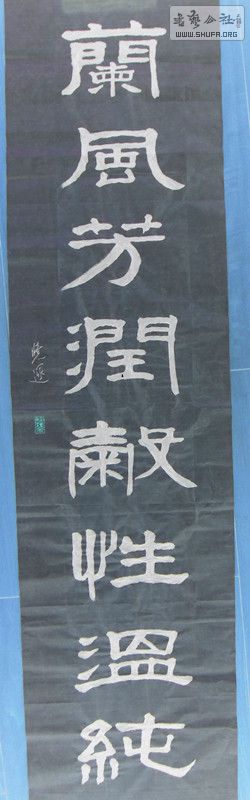 蘭風芳潤穀性溫純
書藝公社
WWW.SHUFA.ORG